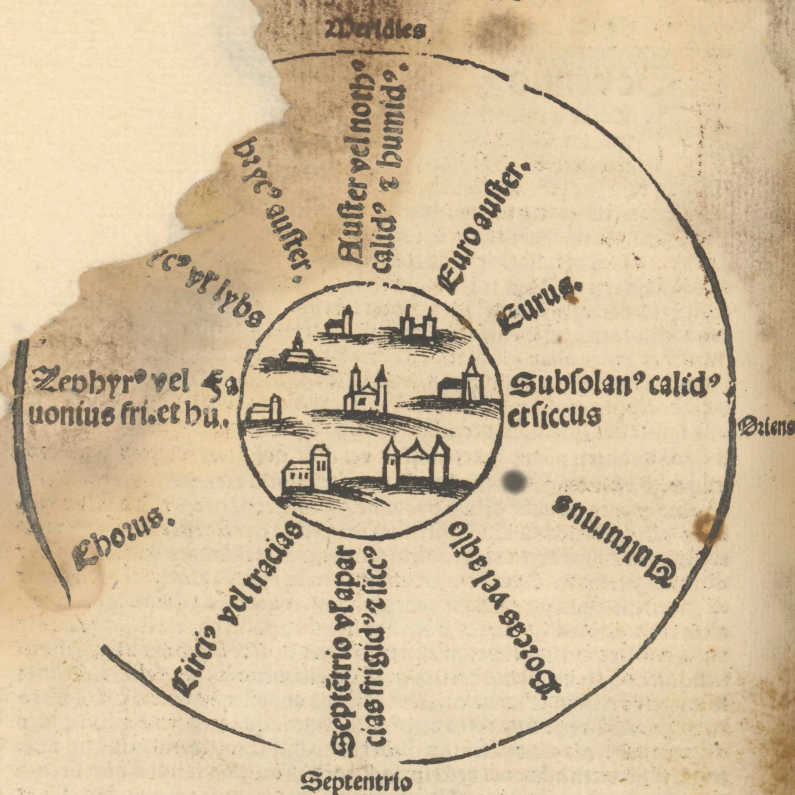 Meridies
Auster vel noth⁹
calid⁹ ⁊ humid⁹.
Euro auster.
Eurus.
Subsolan⁹ calid⁹
et siccus
Oriens
Uulturnus
Boreas vel aq̇lo
Septētrio vl apar
cias frigid⁹ ⁊ sicc⁹
Septentrio
Circi⁹ vel tracias
Chorus.
Zephyr⁹ vel Fa
uonius fri. et hu.
vl lybs
auster.